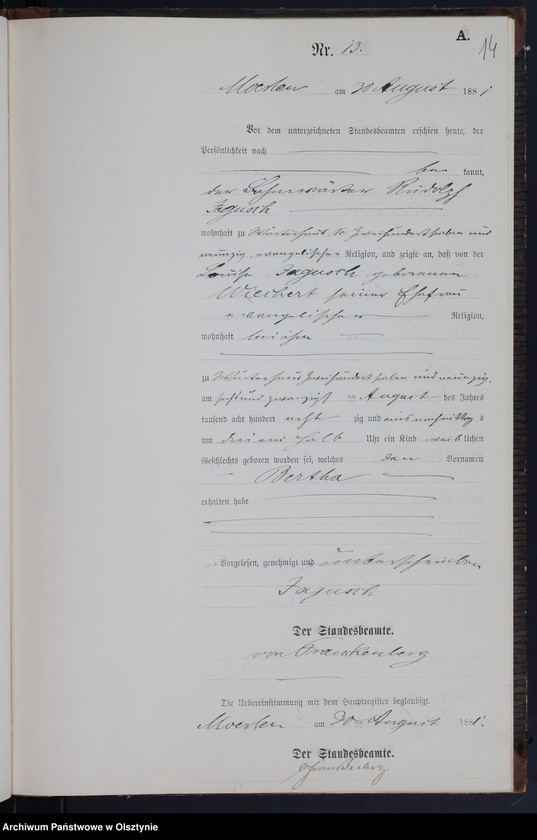 A.
14
Nr. 13.
Moerlen am 30 August 1881
Vor dem unterzeichneten Standesbeamten erschien heute, der
Persönlichkeit nach
be kannt,
der Bahnwärter Rudolph
Jagusch
wohnhaft zu Wärterhaus No zweihundert sieben und
neunzig, evangelischer Religion, und zeigte an, daß von der
Louise Jagusch geborenen
Wiechert seiner Ehefrau
evangelischer Religion,
wohnhaft bei ihm
zu Wärterhaus zweihundert sieben und neunzig,
am sechsundzwanzigst en August des Jahres
tausend acht hundert acht zig und eins
um drei ein halb Uhr ein Kind weiblichen
Geschlechts geboren worden sei, welches den Vornamen
Bertha
erhalten habe
Vorgelesen, genehmigt und unterschrieben
Jagusch
Der Standesbeamte.
von Franckenberg
Die Uebereinstimmung mit dem Hauptregister beglaubigt.
Moerlen am 30 August 1881.
Der Standesbeamte.
vFranckenberg
Archiwum Państwowe w Olsztynie